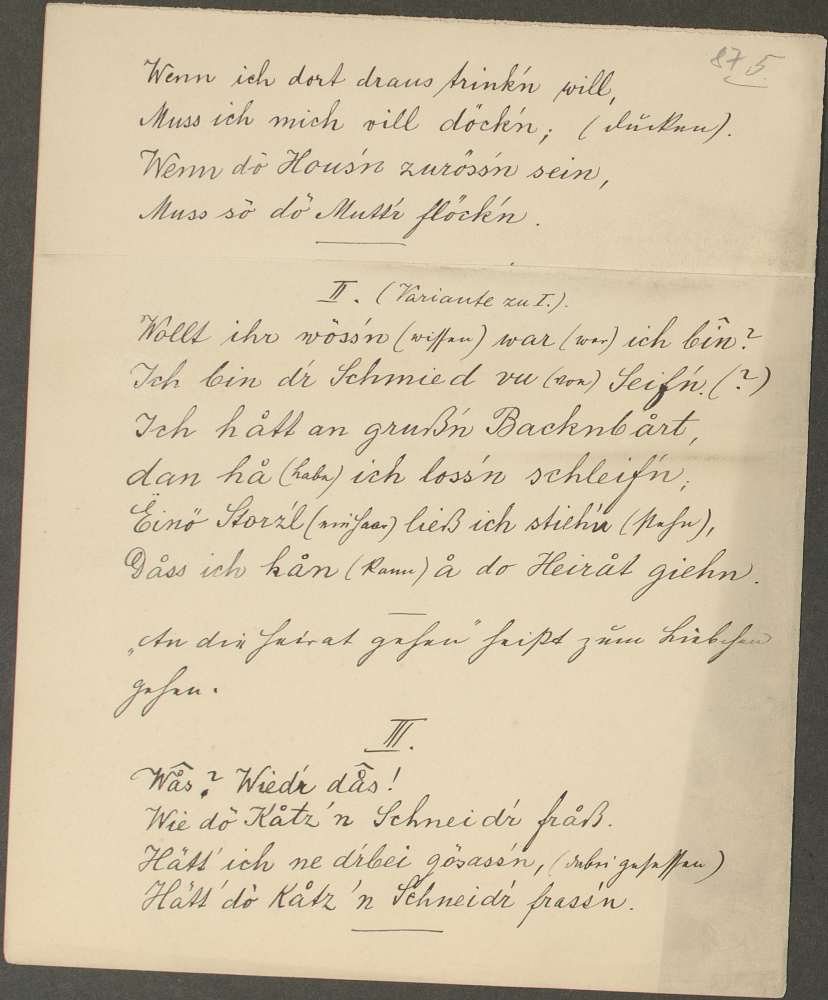 87 5
Wenn ich dort draus trink'n will,
Muss ich mich vill döck'n; (dücken).
Wenn dö Hous'n zuröss'n sein,
Muss sö dö Mutt'r flöck'n.
II. (Variante zu I.).
Wollt ihr wöss'n (wissen) war (wer) ich bîn?
Ich bin d'r Schmied vu (von) Seif'n. (?)
Ich hått an gruß'n Backnbårt,
dan hå (habe) ich loss'n schleif'n;
Einö Storz'l (ein Haar) ließ ich stieh'n (stehn),
Dåss ich kån (kann) å do Heiråt giehn.
„An die Heirat gehen" heißt zum Liebchen
gehen.
III.
Wås? Wied'r dås!
Wie dö Kåtz 'n Schneid'r fråß.
Hätt' ich ne d'rbei gösass'n, (dabei gesessen)
Hätt' dö Kåtz 'n Schneid'r frass'n.